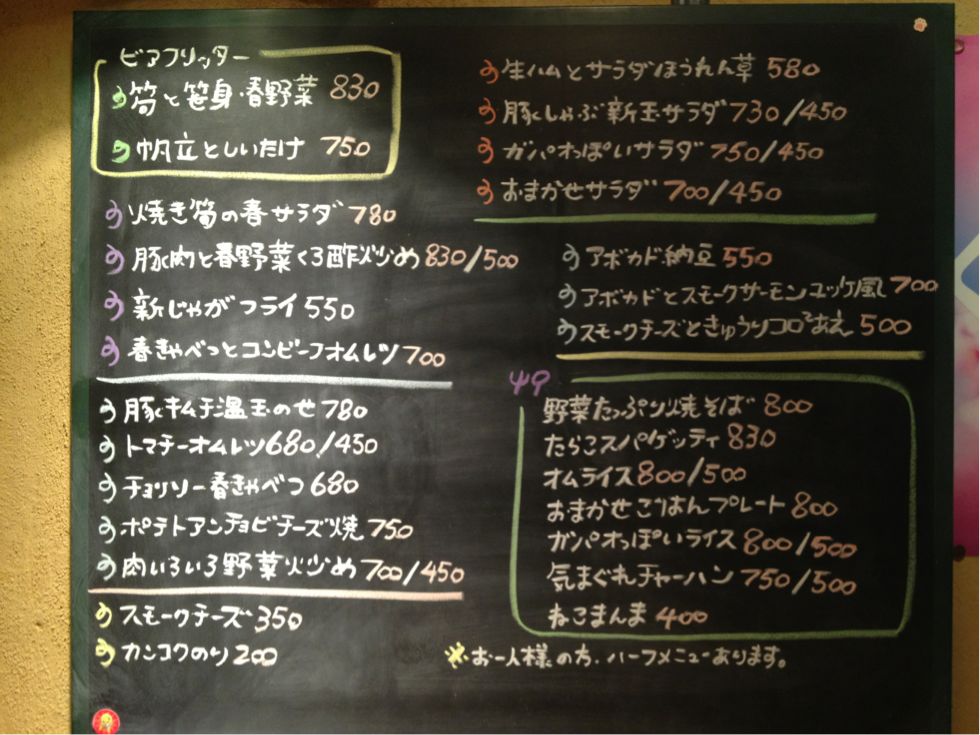 ビアフリッター
筍と笹身・春野菜 830
帆立としいたけ 750
焼き筍の春サラダ 780
豚肉と春野菜くろ酢炒め 830/500
新じゃがフライ 550
春きゃべつとコンビーフオムレツ 700
豚キムチ温玉のせ 780
トマチーオムレツ 680/450
チョリソー春きゃべつ 680
ポテトアンチョビチーズ焼 750
肉いろいろ野菜炒め 700/450
スモークチーズ 350
カンコクのり 200
生ハムとサラダほうれん草 580
豚しゃぶ新玉サラダ 730/450
ガパオっぽいサラダ 750/450
おまかせサラダ 700/450
アボカド納豆 550
アボカドとスモークサーモンユッケ風 700
スモークチーズときゅうりコロコロあえ 500
野菜たっぷり焼そば 800
たらこスパゲッティ 830
オムライス 800/500
おまかせごはんプレート 800
ガパオっぽいライス 800/500
気まぐれチャーハン 750/500
ねこまんま 400
※お一人様の方、ハーフメニューあります。